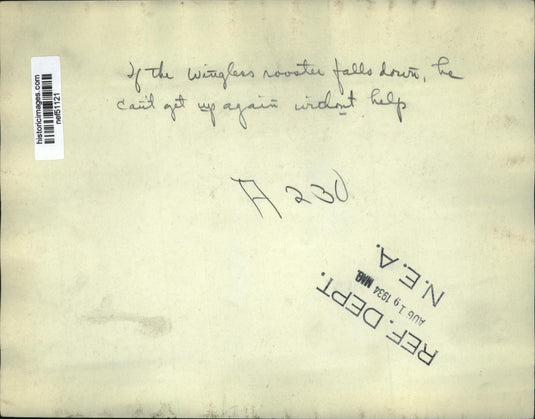 If the wingless rooster falls down, he
can't get up again without help
A 230
historicimages.com
net51121
REF. DEPT.
AUG 19 1934
N.E.A.